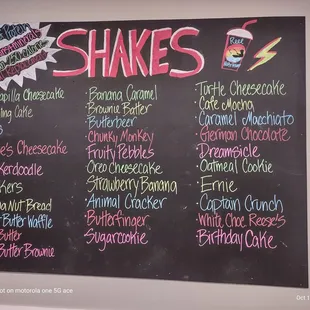 SHAKES
Cheesecake
Cake
's Cheesecake
kerdoodle
kers
Nut Bread
Butter Waffle
Butter
Butter Brownie
Banana Caramel
Brownie Batter
Butterbeer
Chunky Monkey
Fruity Pebbles
Oreo Cheesecake
Strawberry Banana
Animal Cracker
Butterfinger
Sugarcookie
Turtle Cheesecake
Cafe Mocha
Caramel Macchiato
German Chocolate
Dreamsicle
Oatmeal Cookie
Ernie
Captain Crunch
White Choc Reese's
Birthday Cake
ot on motorola one 5G ace
Oct 1